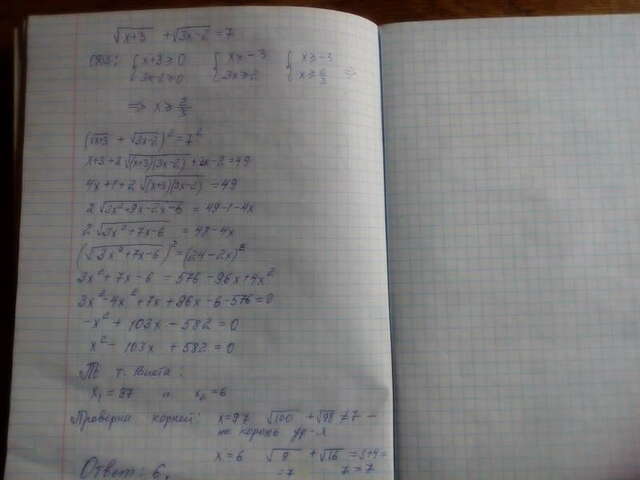 √(x+3) + √(3x-2) = 7
ОДЗ: { x+3 ≥ 0 { x ≥ -3 { x ≥ -3
{ 3x-2 ≥ 0 { 3x ≥ 2 { x ≥ 2/3 ⇒
⇒ x ≥ 2/3
(√(x+3) + √(3x-2))² = 7²
x+3+2√((x+3)(3x-2)) + 3x-2 = 49
4x+1+2√((x+3)(3x-2)) = 49
2√(3x²+9x-2x-6) = 49-1-4x
2√(3x²+7x-6) = 48-4x
(√(3x²+7x-6))² = (24-2x)²
3x²+7x-6 = 576-96x+4x²
3x²-4x²+7x+96x-6-576=0
-x²+103x-582=0
x²-103x+582=0
По т. Виета:
x₁=97 и x₂=6
Проверка корней: x=97 √100 + √ ≠ 7 -
не корень ур-я
x=6 √9 + √16 = 3+4=
=7 7=7
Ответ: 6.